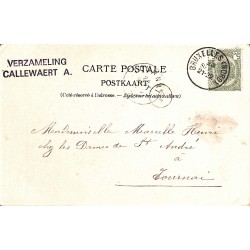 VERZAMELING
CALLEWAERT A.
CARTE POSTALE
POSTKAART
(Côté réservé à l'adresse. — Zijde voor het adres alleen)
BRUXELLES
Mademoiselle Marcelle Henri
chez les Dames de St André
à
Tournai